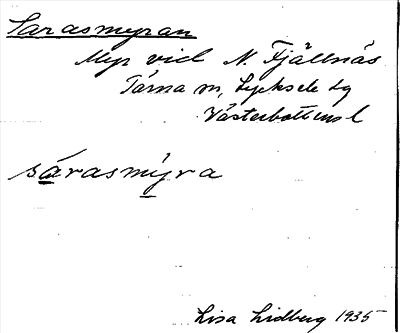 Sarasmyran
Myr vid N. Fjällnäs
Tärna sn, Lycksele lg
Västerbottens l
sárasmy̲ra
Lisa Lidberg 1935